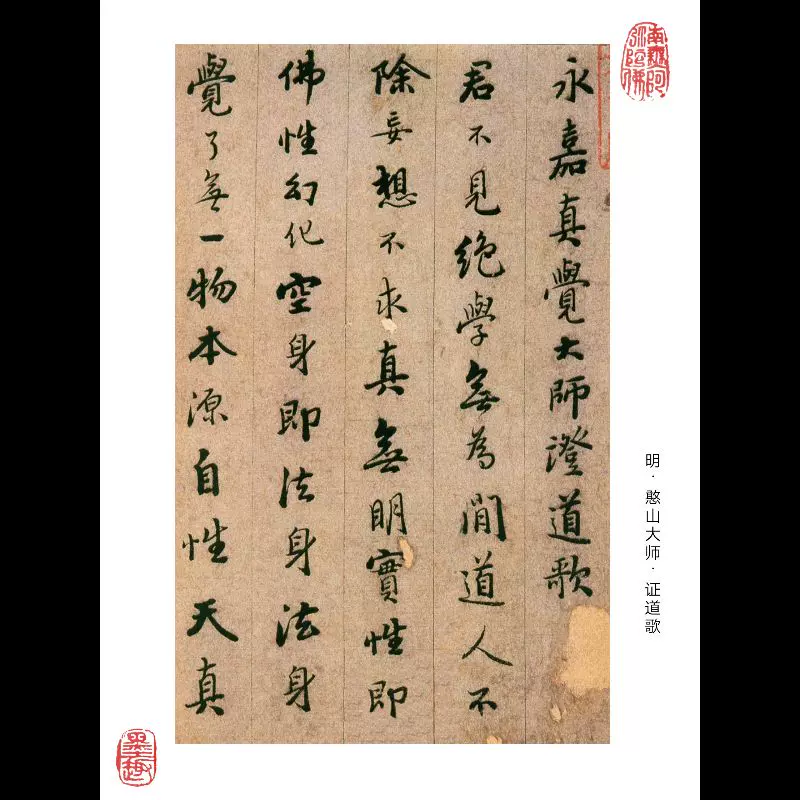 南無阿弥陀佛
永嘉真覺大師澄道歌
君不見絕學無為閒道人不
除妄想不求真無明實性即
佛性幻化空身即法身法身
覺了無一物本源自性天真
明·憨山大师·证道歌
墨趣